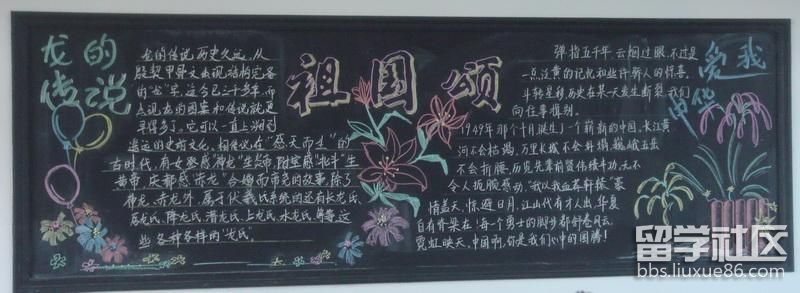 龙的
传说
龙的传说历史久远,从
殷契甲骨文出现结构完备
的"龙"字,迄今已三千多年,而
出现龙的图案和传说就更
早得多了。它可以一直上溯到
遥远的史前文化。相传说在"感天而生"的
古时代,有女登感"神龙"生炎帝,附宝感"北斗"生
黄帝,庆都感"赤龙"合婚而帝尧的故事。除了
神龙、赤龙外,属于伏羲氏系统的还有长龙氏、
居龙氏、降龙氏、潜龙氏、上龙氏、水龙氏、等等这
些各种各样的"龙氏"。
祖国颂
弹指五千年,云烟过眼,不过是
一点泛黄的记忆和些许骄人的惊喜。
斗转星移,历史在某一天发生断裂,我们
向往事惜别。
1949年那个十月诞生了一个崭新的中国。长江黄
河不会枯竭,万里长城不会 塌,巍峨五岳
不会折腰,历览先辈前贤伟绩丰功,无不
令人扼腕感动。"我以我血荐轩辕"豪
情盖天、惊避日月。江山代有才人出,华夏
自有脊梁在!每个勇士的脚步都舒卷风云,
霓虹映天。中国啊,你是我们心中的图腾!
我爱
中华
留学社区
bbs.liuxue86.com